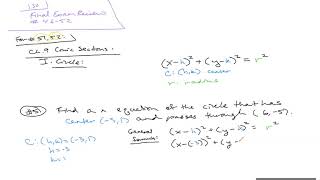 130
Final Exam Review
# 48-52
For # 51, 52:
Ch. 9 Conic Sections.
I. Circle:
(x-h)² + (y-k)² = r²
C: (h,k) center
r: radius
Find an equation of the circle that has
center (-3,1) and passes through (6,-5).
C: (h,k) = (-3,1)
h = -3
k =
General
Formula:
(x-h)² + (y-k)² = r²
(x-(-3))² + (y-